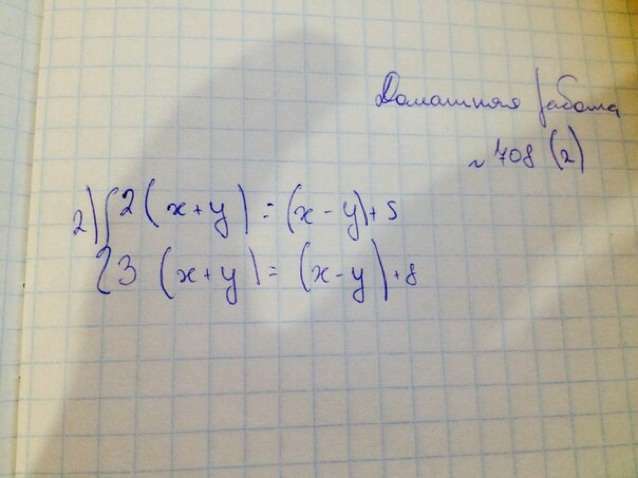 Домашняя работа
~ 708 (2)
2) { 2 (x+y) = (x-y)+5
3 (x+y) = (x-y)+8